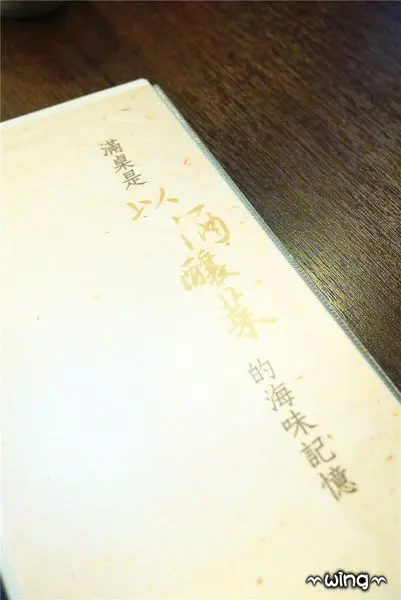 滿桌是以酒釀菜的海味記憶
~wing~